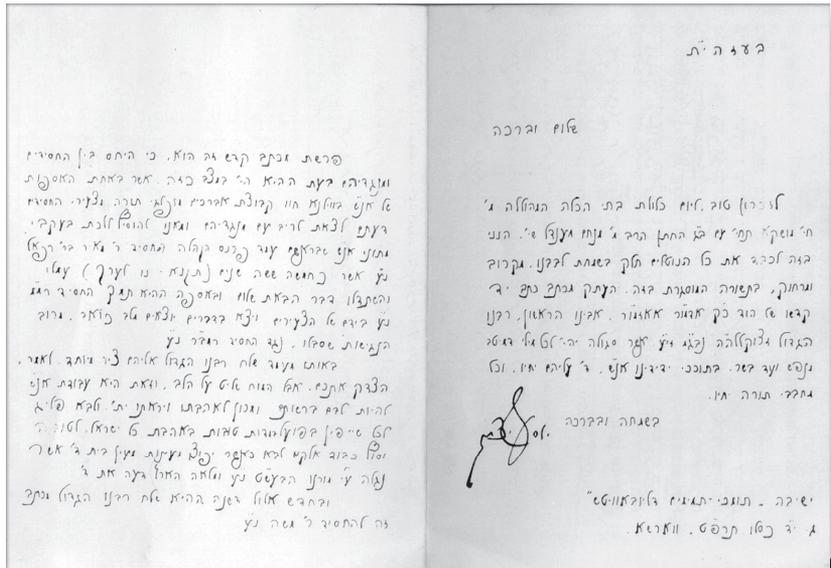 בעזהי"ת
שלום וברכה
לזכרון טוב, ליום כלולת בתי הכלה המהוללה מ'
חי' מושקא תחי' עם ב"ג החתן הרב מ' מנחם מענדל שי', הנני
בזה לכבד את כל הנוטלים חלק בשמחת לבבנו, מקרוב
ומרחוק, בתשורה המוסגרת בזה, העתק מכתב כתב יד
קדשו של הוד כ"ק אדמו"ר אאזמו"ר, אבינו הראשון, רבנו
הגדול זצוקללה"ה נבג"מ זי"ע, אשר סגולה יהי' לכל מילי דמיטב
מנפש ועד בשר, בתוככי ידידינו אנ"ש, ד' עליהם יחיו, וכל
מחבבי תורה יחיו.
בשמחה וברכה
ישיבה - תומכי-תמימים דליובאוויטש"
ג' י"ד כסלו תרפ"ט, ווארשא.
פרשת מכתב קדש זה הוא, כי היחס בין החסידים
ומנגדיהם בעת ההיא הי' במצב כזה, אשר באחת האספות
של אנ"ש בווילנא חוו קבוצת אברכים מופלגי תורה, מצעירי החסידים
דעתם לצאת לריב עם מנגדיהם ומאנו להוסיף ללכת בעקבי
מתוני אנ"ש שבראשם עמד פרנס הקהלה החסיד ר' מאיר בר' רפאל
נ"ע אשר כחמשה ששה שנים (תקנ"א - נו לערך) עמלו
והשתדלו דבר הבאת שלום ובאספה ההיא תמך החסיד רמ"מ
נ"ע בידם של הצעירים ויצא בדברים יוצאים מלב כואב, מרוב
הנגישות שסבלו, נגד החסיד רמב"ר נ"ע
באותו מעמד שלח רבנו הגדול אליהם ציר מיוחד, לאמר,
הצדק אתכם, אבל המוח שליט על הלב, וזאת היא עבודת אנ"ש
להיות לבם ברשותו ומכוון לאהבתו ויראתו ית', ולבא פליג
לכל שייפין בפועל עבודות טובות באהבת כל ישראל, לטובה
וסוף כבוד אלקים לבא כאשר יפוצו מעינות מעין בית ד' אשר
נגלה ע"י מורנו הבעש"ט נ"ע ומלאה הארץ דעה את ד'
ובחדש אלול דשנה ההיא שלח רבנו הגדול מכתב
זה להחסיד ר' משה נ"ע